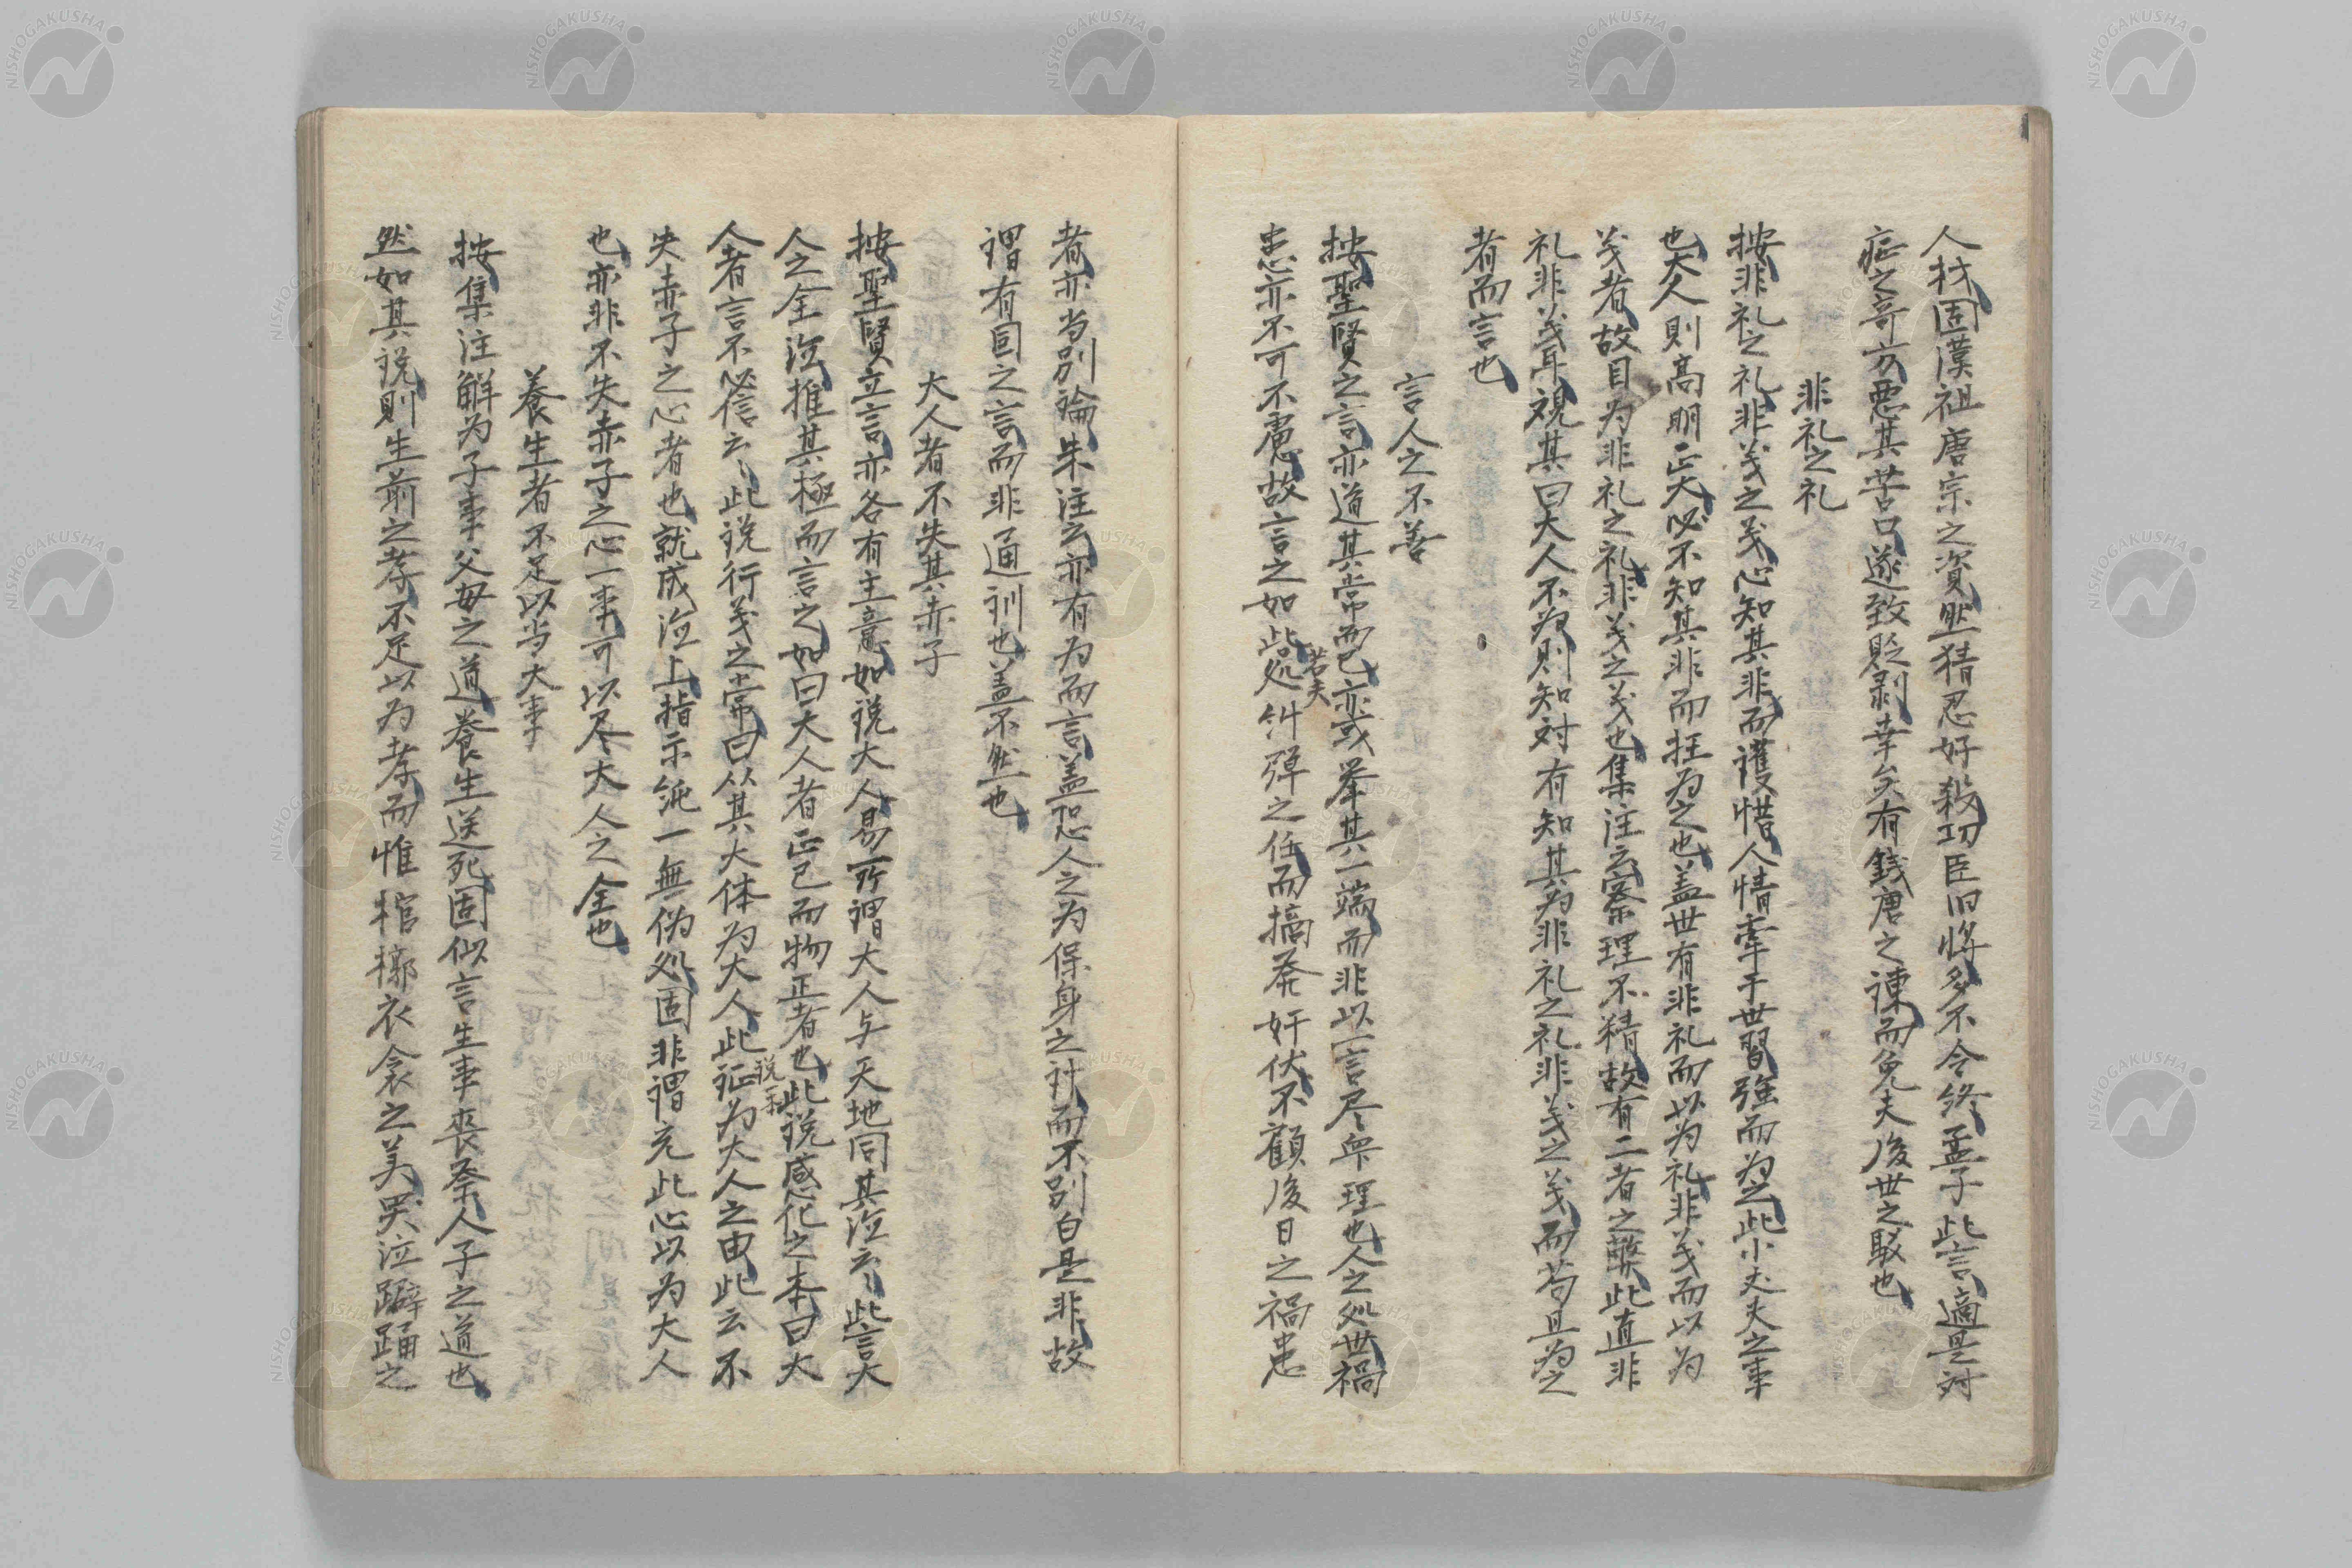 人材固漢祖唐宗之資然猜忍好殺功臣旧将多不令終孟子此言適是対
症之奇方悪其苦口遂致貶剥幸矣有銭唐之諫而免夫後世之駁也
非礼之礼
按非礼之礼非義之義心知其非而護惜人情牽于世習強而為之此小丈夫之事
也大人則高明正大必不知其非而枉為之也蓋世有非礼而以为礼非義而以为
義者故目为非礼之礼非義之義也集注云察理不精故有二者之蔽此直非
礼非義耳視其曰大人不為則知対有知其為非礼之礼非義之義而苟且為之
者而言也
言人之不善
按聖賢之言亦道其常而已亦或挙其一端而非以一言尽毎理也人之処世禍
患亦不可不慮故言之如此若夫処糾弾之任而摘発奸伏不顧後日之禍患
者亦当別論朱注云亦有为而言蓋恐人之为保身之計而不別白是非故
謂有囙之言而非通訓也蓋不然也
大人者不失其赤子
按聖賢立言亦各有主意如説大人易所謂大人与天地同其徳云〻此言大
人之全徳推其極而言之如曰大人者正己而物正者也此説感化之本曰大
人者言不必信云〻此説行義之常曰从其大体为大人此証説一本为大人之由此云不
失赤子之心者也就成徳上指示純一無偽処固非謂充此心以为大人
也亦非不失赤子之心一事可以尽大人之全也
養生者不足以当大事
按集注解为子事父母之道養生送死固似言生事喪祭人子之道也
然如其説則生前之孝不足以为孝而惟棺槨衣衾之美哭泣躃踊之
NISHOGAKUSHA